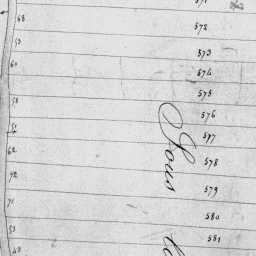 68
572
53
573
60
574
58
575
576
577
62
578
72
579
71
580
53
581
Sous